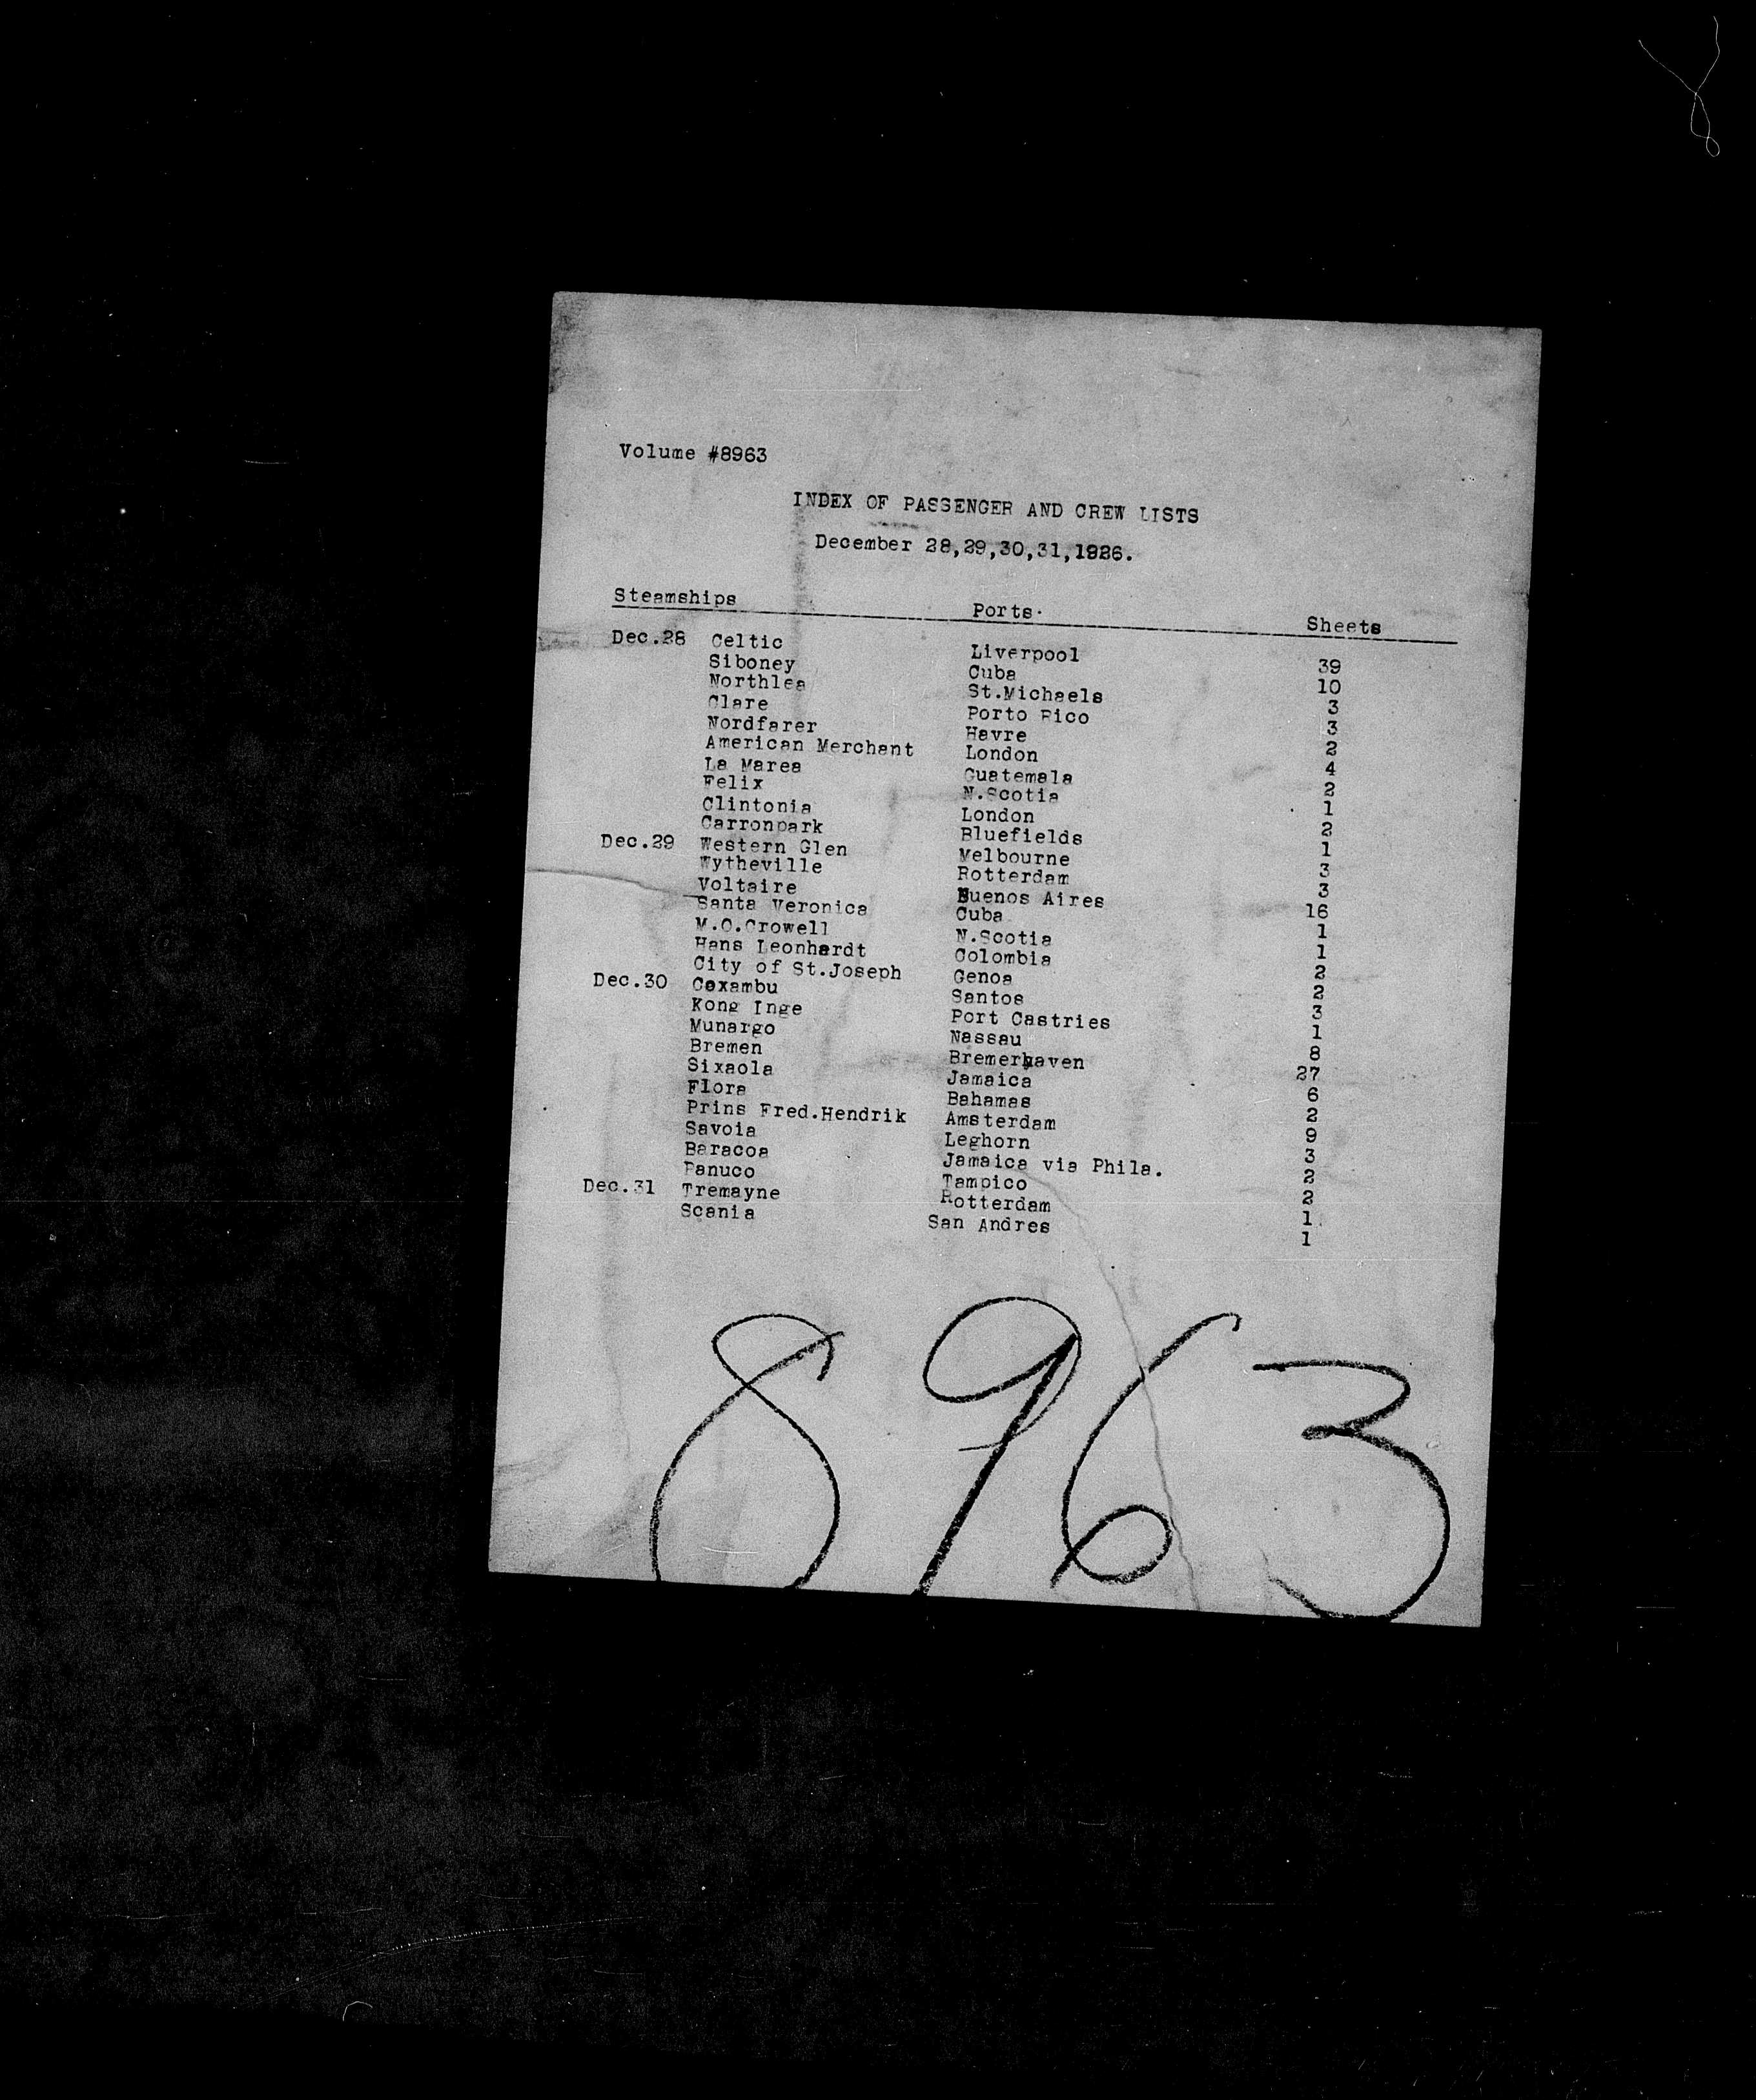 Volume #8963
INDEX OF PASSENGER AND CREW LISTS
December 28,29,30,31,1926.
Steamships Ports Sheets
Dec.28 Celtic Liverpool 39
Siboney Cuba 10
Northlea St.Michaels 3
Clare Porto Rico 3
Nordfarer Havre 2
American Merchant London 4
La Marea Guatemala 2
Felix N.Scotia 1
Clintonia London 2
Carronpark Bluefields 1
Dec.29 Western Glen Melbourne 3
Wytheville Rotterdam 3
Voltaire Buenos Aires 16
Santa Veronica Cuba 1
M.O.Crowell N.Scotia 1
Hans Leonhardt Colombia 2
City of St.Joseph Genoa 2
Dec.30 Caxambu Santos 3
Kong Inge Port Castries 1
Munargo Nassau 8
Bremen Bremerhaven 27
Sixaola Jamaica 6
Flora Bahamas 2
Prins Fred.Hendrik Amsterdam 9
Savoia Leghorn 3
Baracoa Jamaica via Phila. 2
Panuco Tampico 2
Dec.31 Tremayne Rotterdam 1
Scania San Andres 1
8963